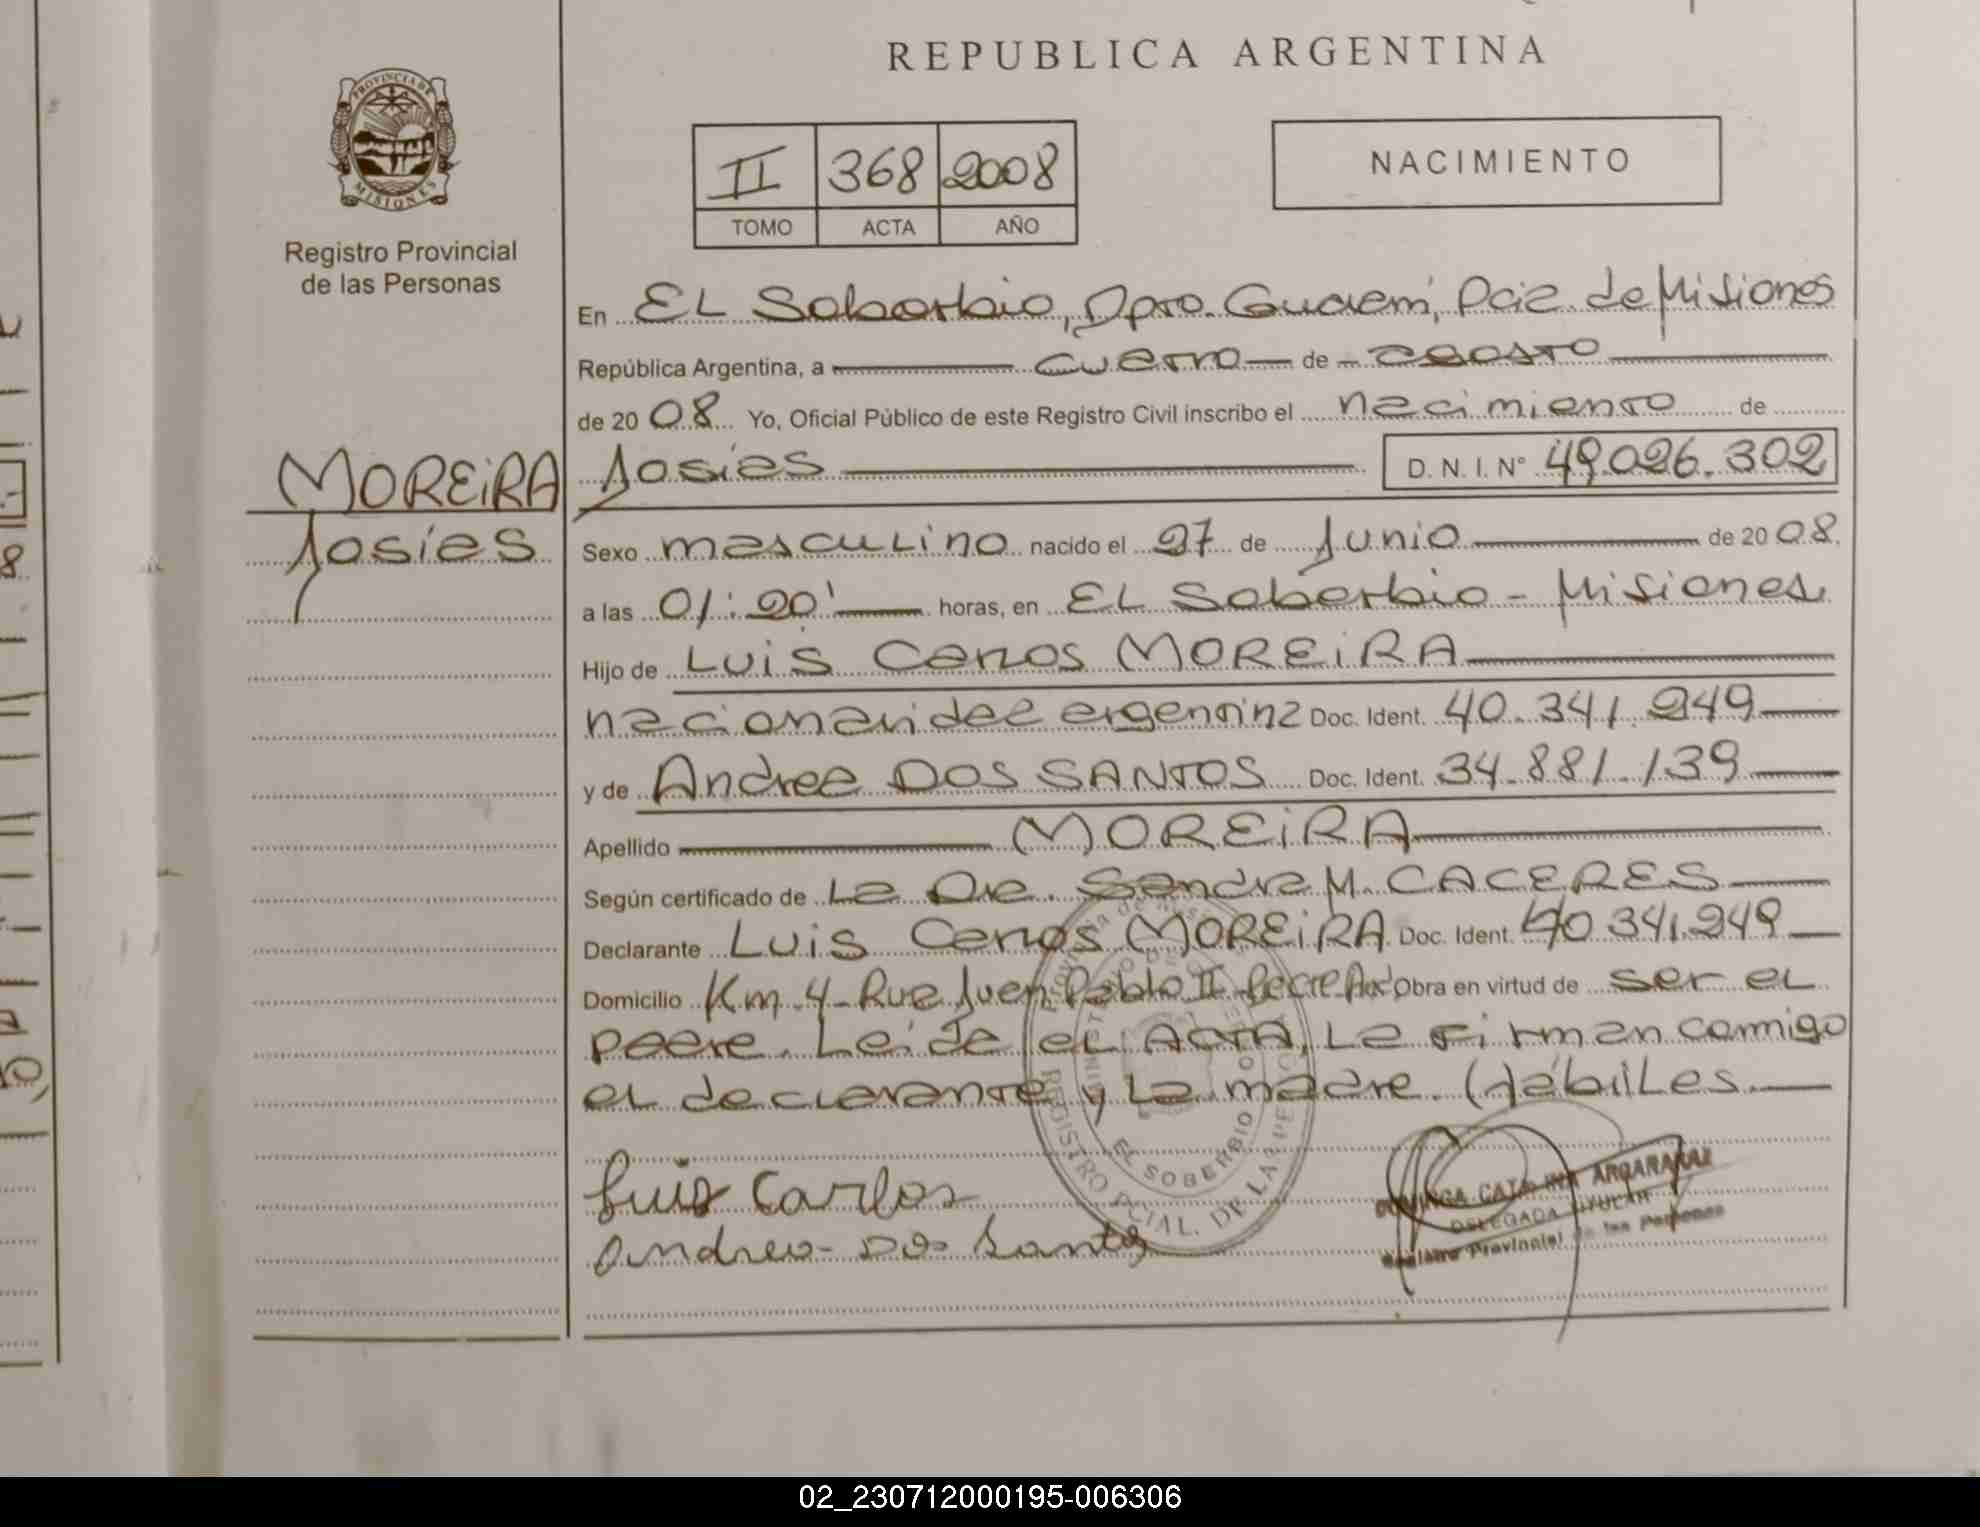 REPUBLICA ARGENTINA
PROVINCIA DE MISIONES
Registro Provincial
de las Personas
II 368 2008
TOMO ACTA AÑO
NACIMIENTO
En EL Soberbio, Dpto. Guaraní, Pcia. de Misiones
República Argentina, a cuatro de agosto
de 2008 Yo, Oficial Público de este Registro Civil inscribo el nacimiento de
MOREIRA
Josias
Josias D. N. I. N° 49.026.302
Sexo masculino nacido el 27 de Junio de 2008.
a las 01:20' horas, en EL Soberbio - Misiones
Hijo de Luis Carlos MOREIRA
nacionalidad argentina Doc. Ident. 40.341.249
y de Andrea DOS SANTOS Doc. Ident. 34.881.139
Apellido MOREIRA
Según certificado de La Dra. Sandra M. CACERES
Declarante Luis Carlos MOREIRA Doc. Ident. 40.341.249
Domicilio Km. 4 - Ruta Juan Pablo II Obra en virtud de ser el
padre. Leída el ACTA, La firman conmigo
el declarante y La madre. Hábiles.
Luis Carlos
Andrea Dos Santos
EL SOBERBIO
DELEGADA TITULAR
Registro Provincial de las Personas
02_230712000195-006306